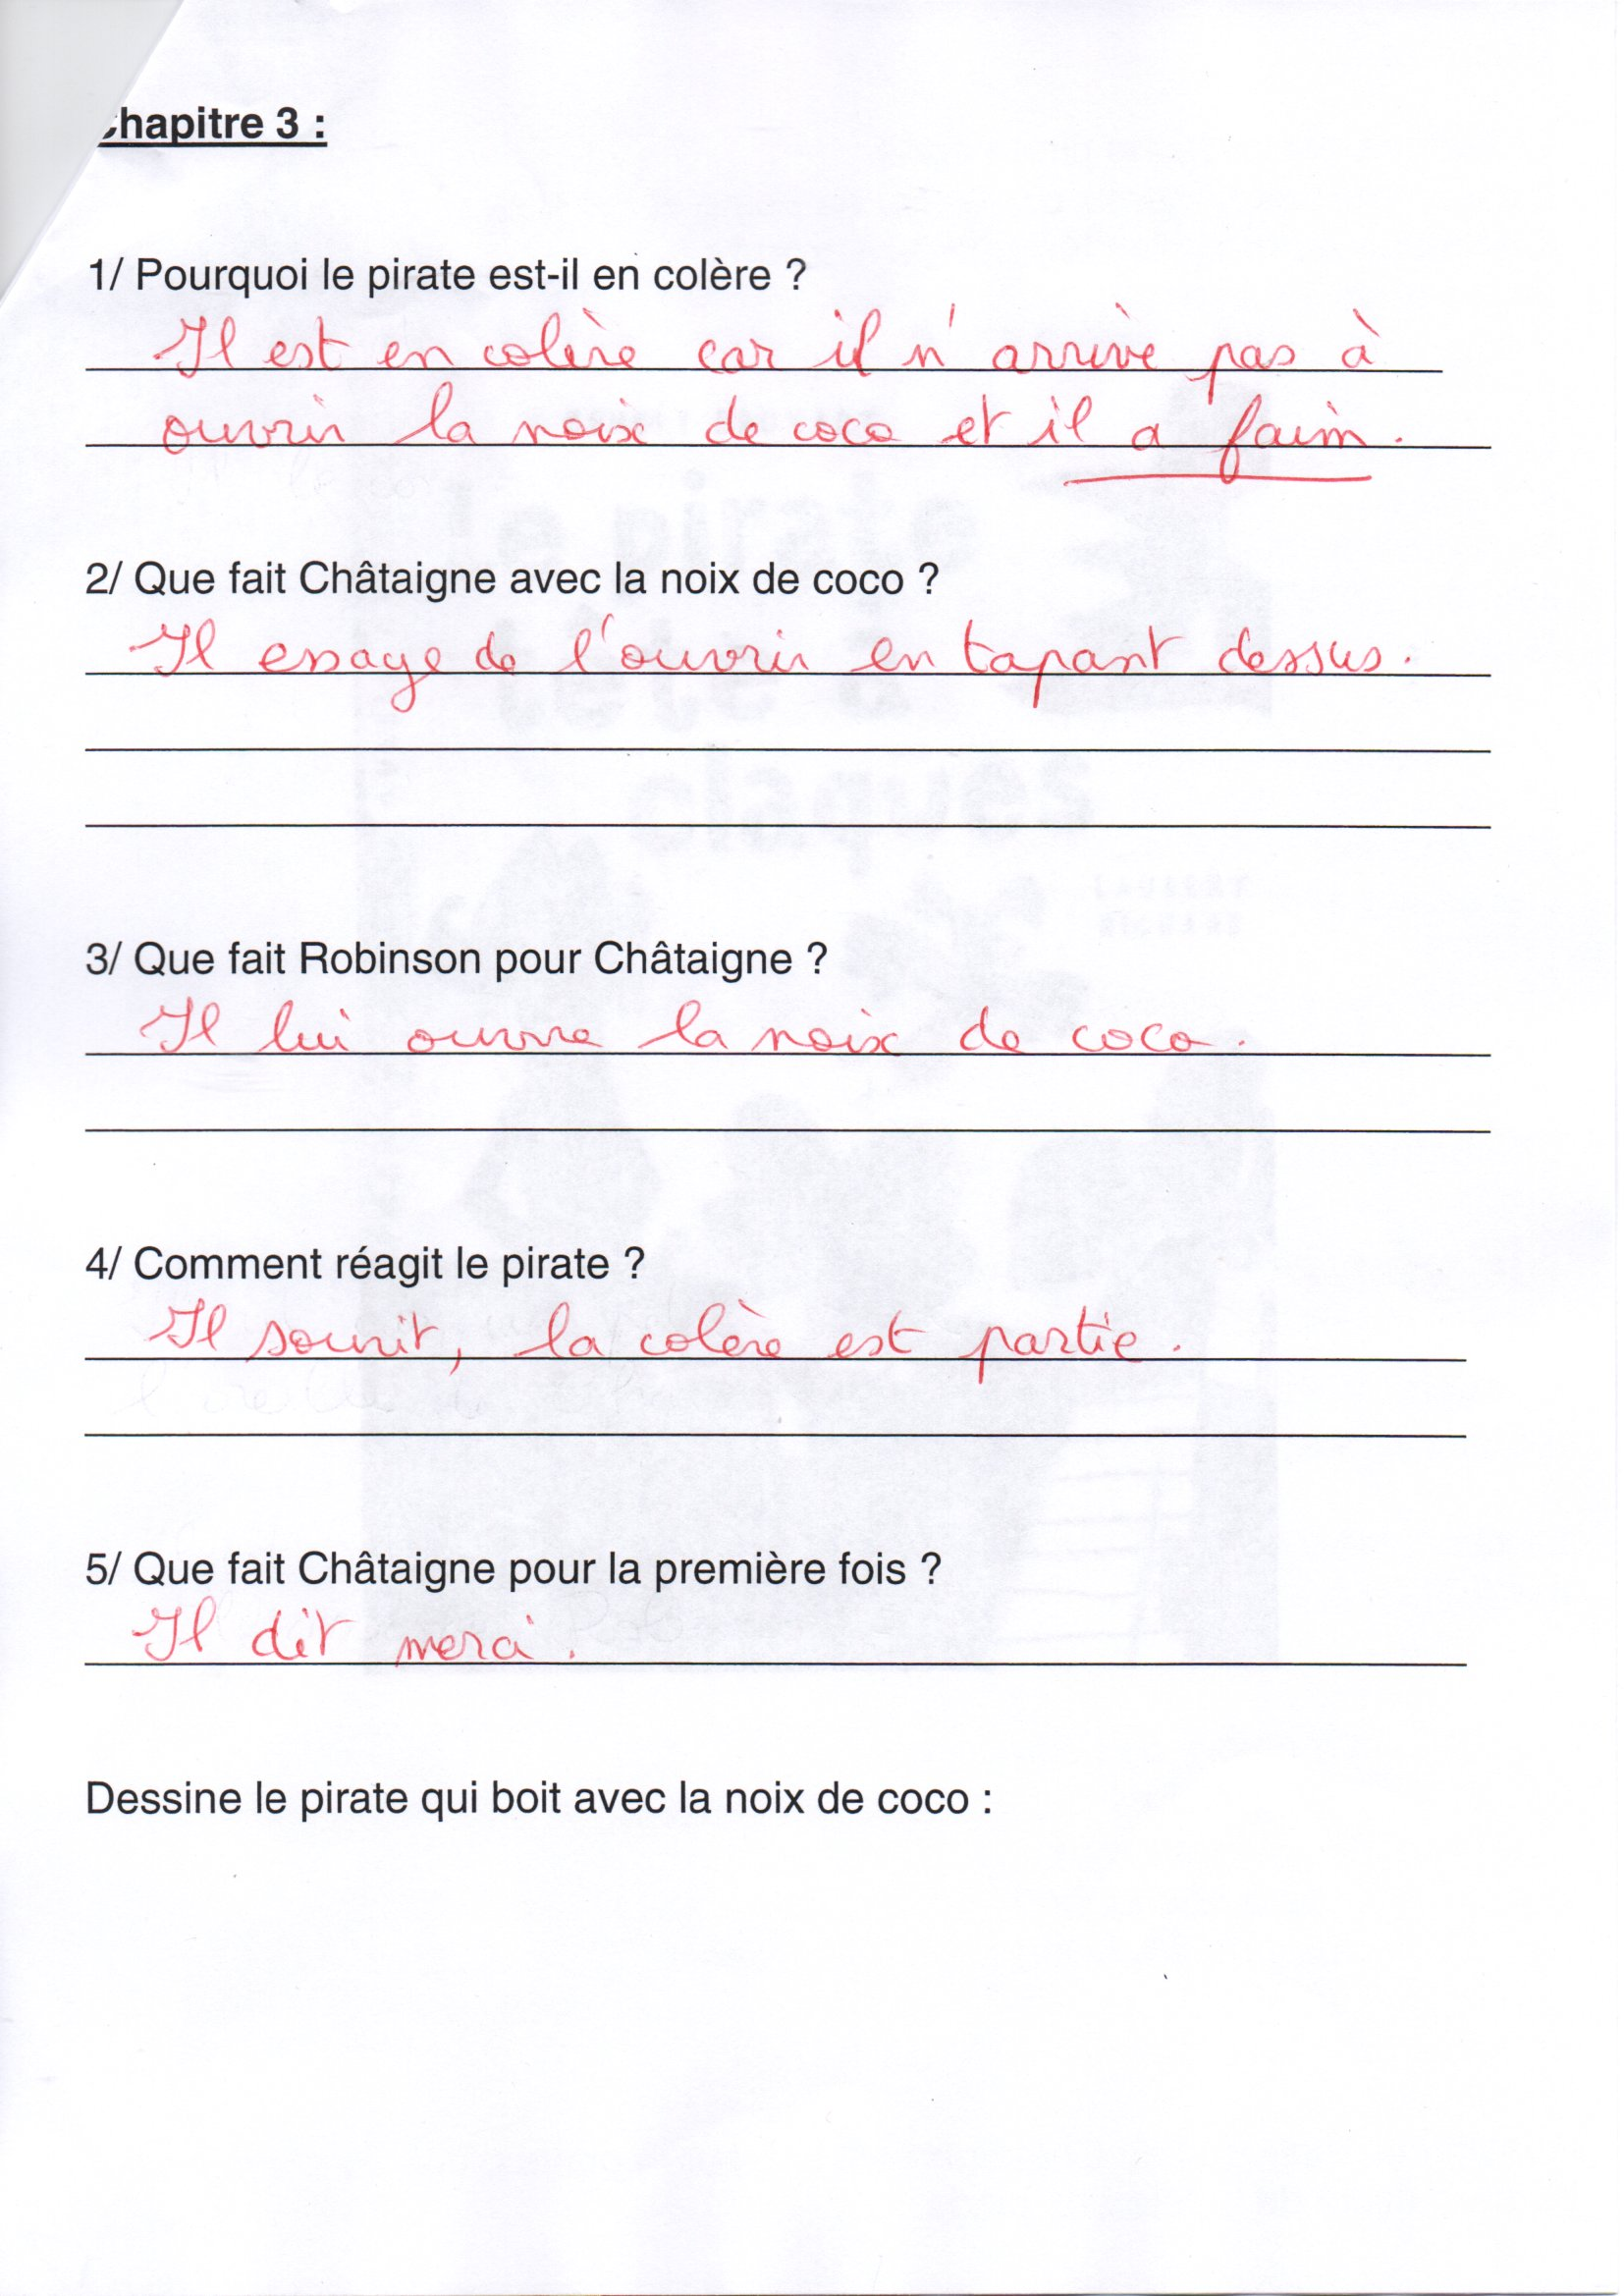 Chapitre 3 :
1/ Pourquoi le pirate est-il en colère ?
Il est en colère car il n'arrive pas à
ouvrir la noix de coco et il a faim.
2/ Que fait Châtaigne avec la noix de coco ?
Il essaye de l'ouvrir en tapant dessus.
3/ Que fait Robinson pour Châtaigne ?
Il lui ouvre la noix de coco.
4/ Comment réagit le pirate ?
Il sourit, la colère est partie.
5/ Que fait Châtaigne pour la première fois ?
Il dit merci.
Dessine le pirate qui boit avec la noix de coco :